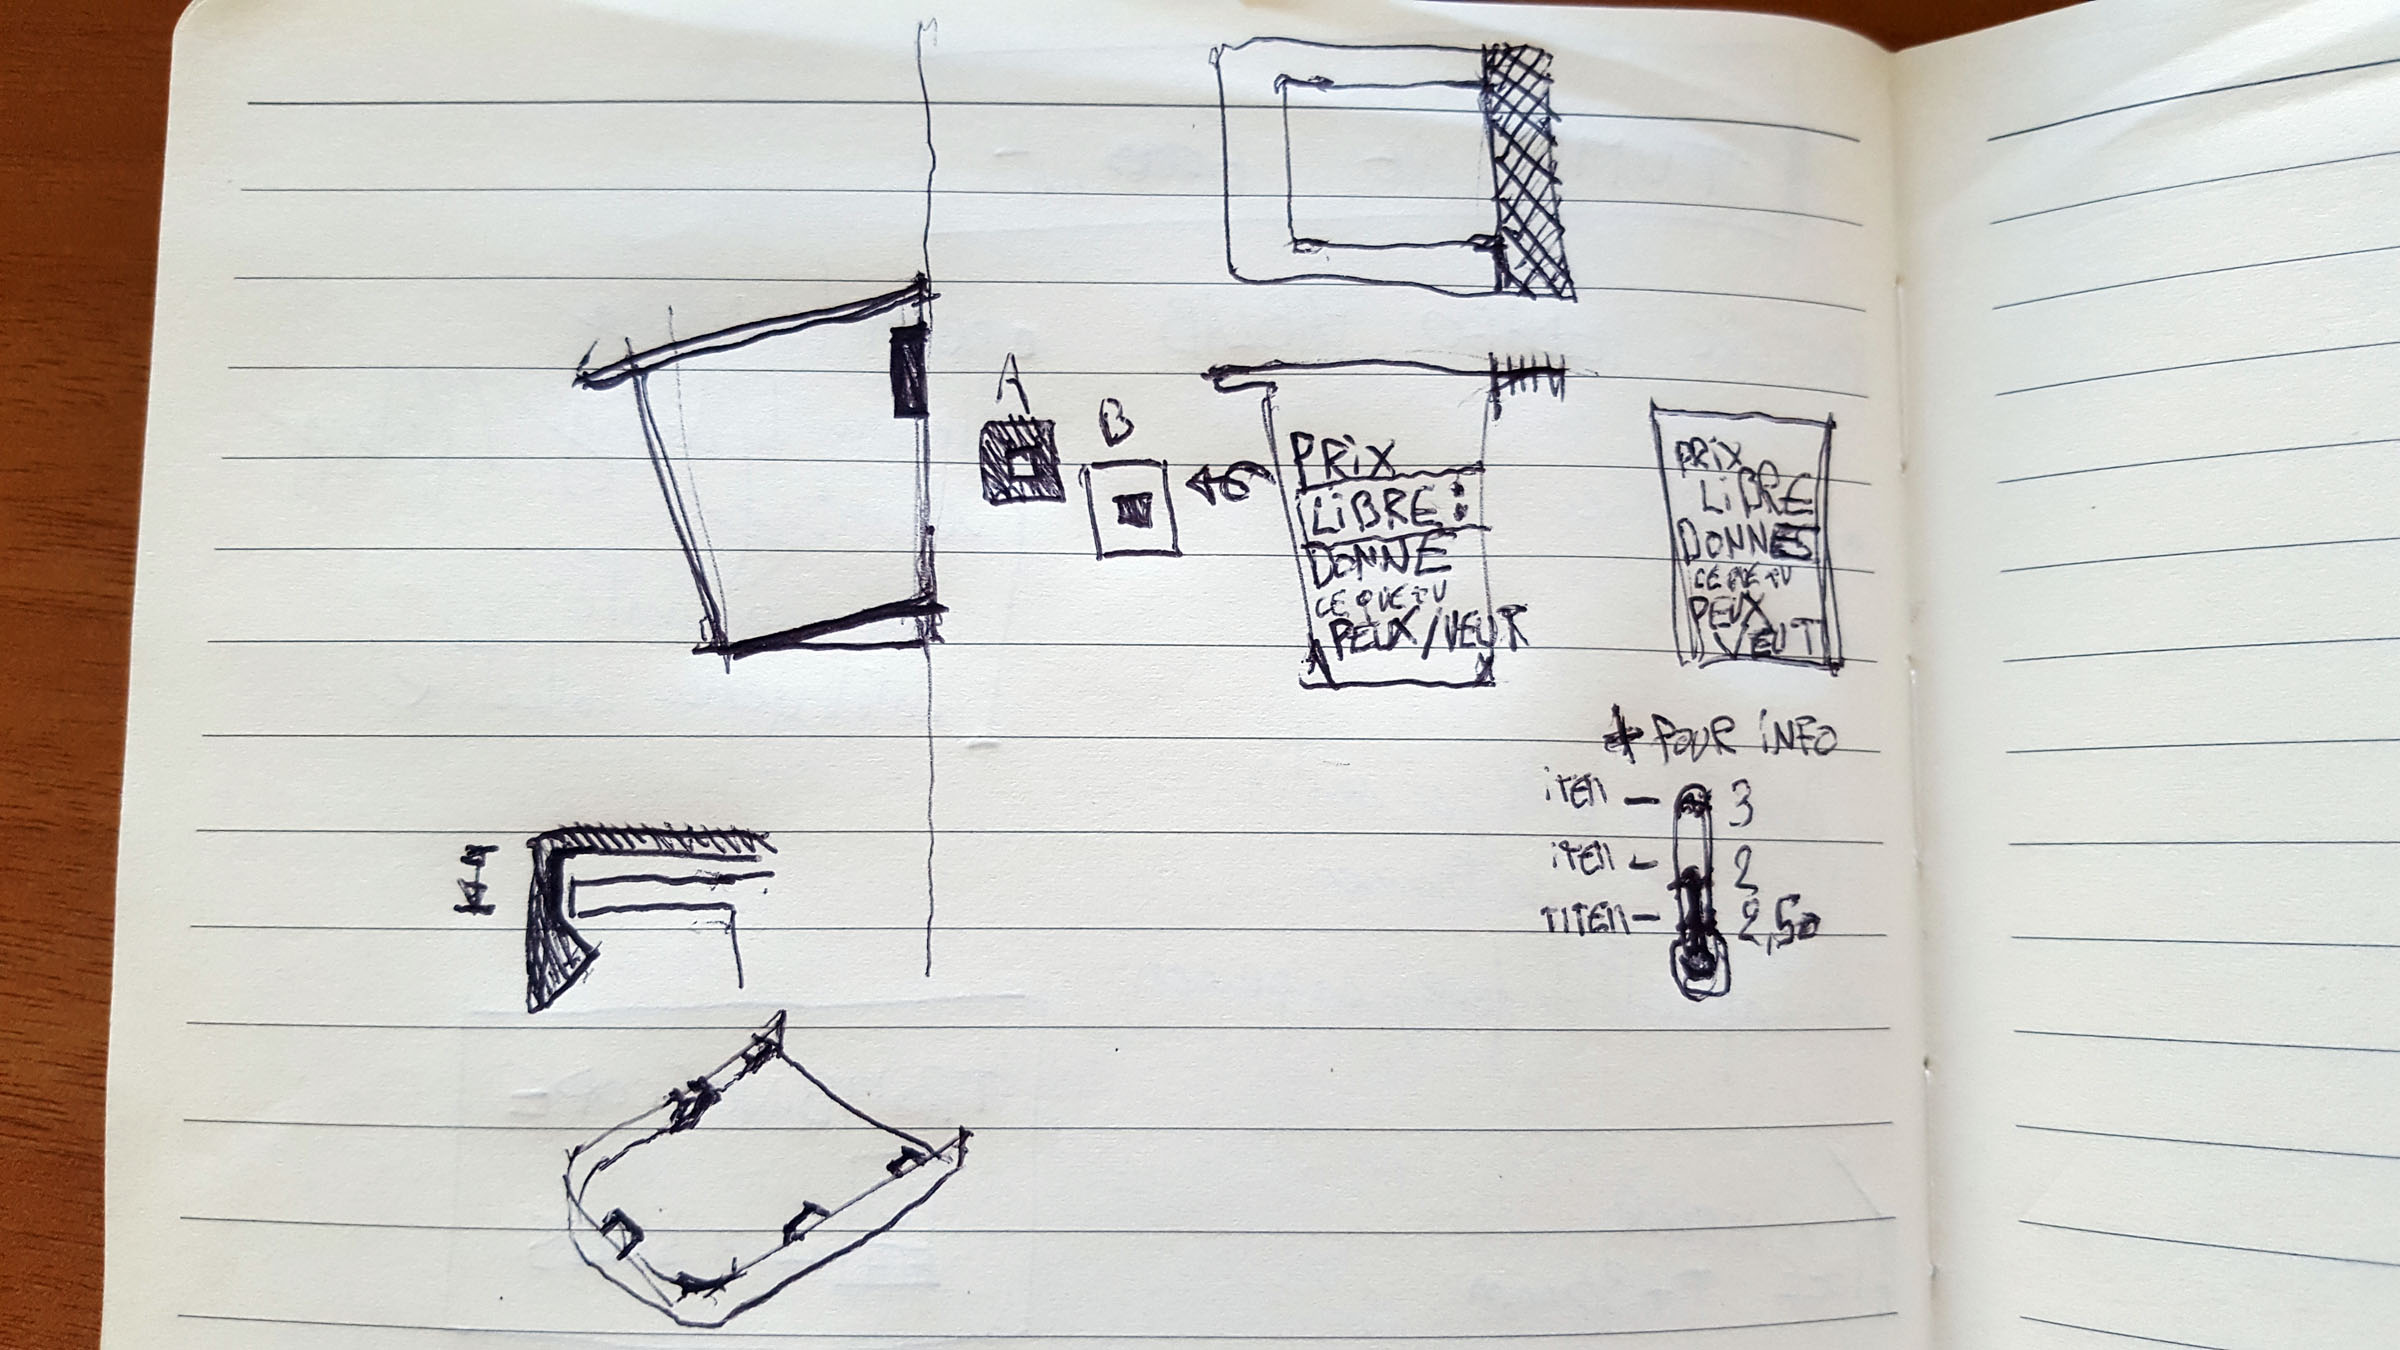 A
B
PRiX
LiBRE :
DONNE
CE QUE TU
PEUX/VEUT
PRiX
LiBRE
DONNES
CE QUE TU
PEUX
VEUT
* POUR iNFO
iTEM — 3
iTEM — 2
TITEM — 2,50